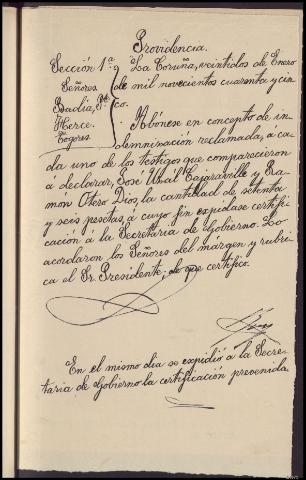 Providencia.
Sección 1ª La Coruña, veintidos de Enero
Señores de mil novecientos cuarenta y cin-
Badía, Pte co.
Herce. Abónese en concepto de in-
Togores demninización reclamada, a ca-
da uno de los testigos que comparecieron
á declarar, José Unál Cajaraville y Ra-
món Otero Dios, la cantidad de setenta
y seis pesetas, a cuyo fin expídase certifi-
cación á la Secretaría de Gobierno. Lo
acordaron los Señores del margen y rubri-
ca el Sr. Presidente; de que certifico.
En el mismo día se expidió á la Secre-
taría de Gobierno la certificación prevenida.